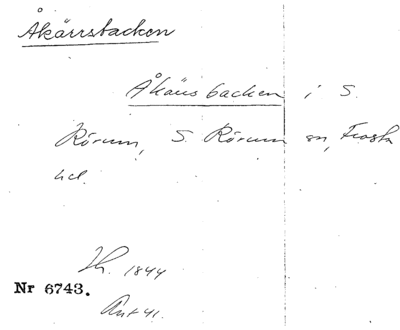 Åkärrsbacken
Åkärsbacken i S.
Rörum, S. Rörum sn, Frosta
hd.
Th. 1844
Nr 6743.
Ant 41.